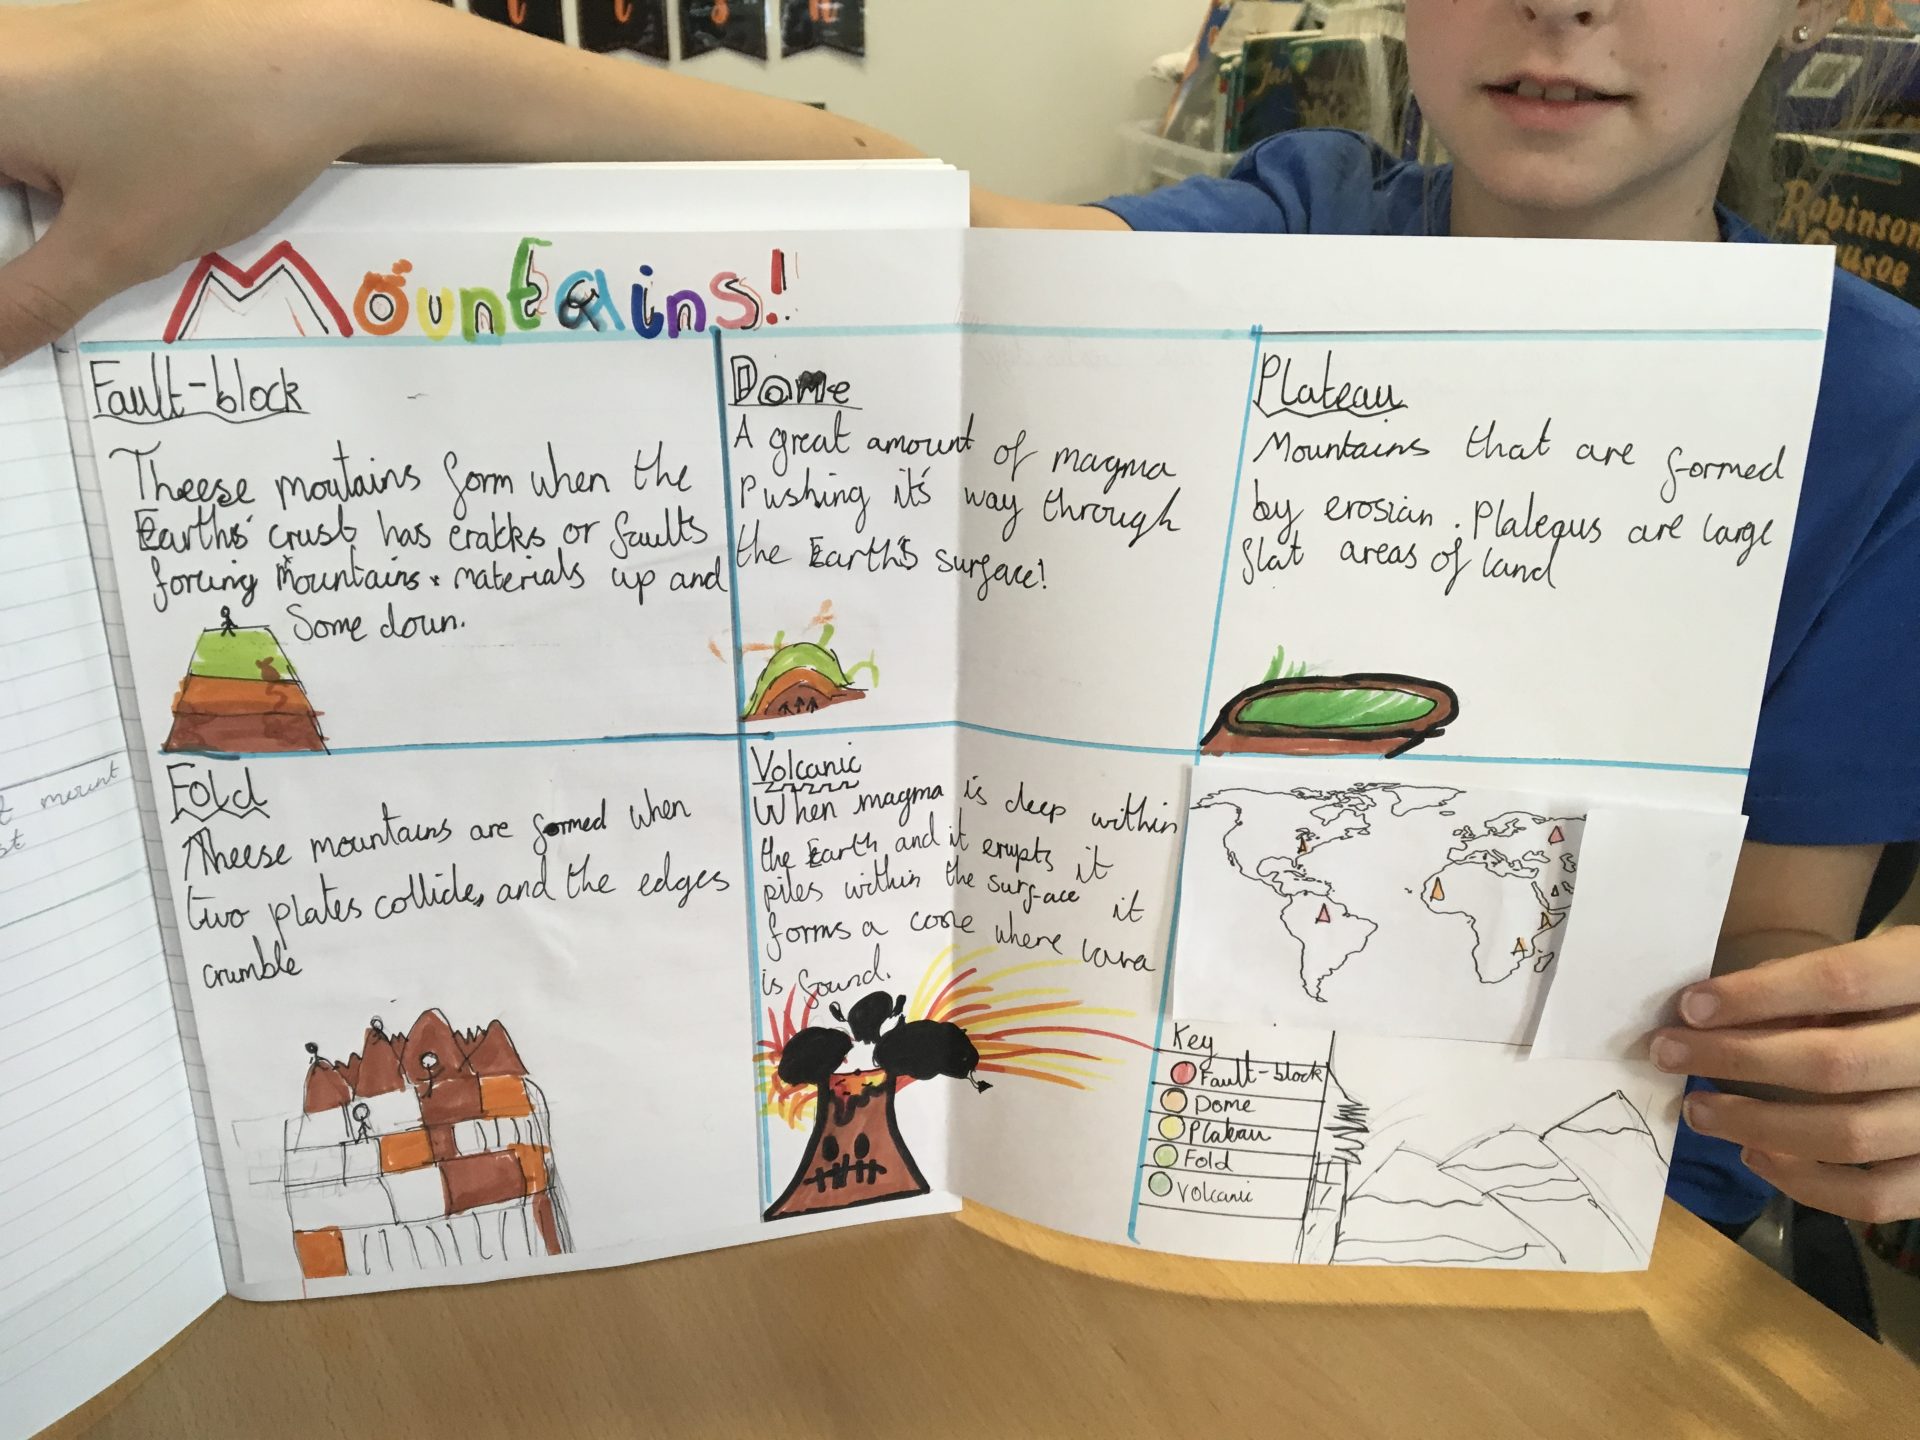 Mountains!
Fault-block
Theese moutains form when the
Earths' crust has crakks or faults
forcing mountains materials up and
Some down.
Dome
A great amount of magma
Pushing it's way through
the Earth's surface!
Plateau
Mountains that are formed
by erosian. Plateaus are large
flat areas of land
Fold
Theese mountains are formed when
two plates collide, and the edges
crumble
Volcanic
When magma is deep within
the Earth and it erupts it
piles within the surface it
forms a cone where lava
is found.
Key
Fault-block
Dome
Plateau
Fold
Volcanic
mount
Robinson
Crusoe